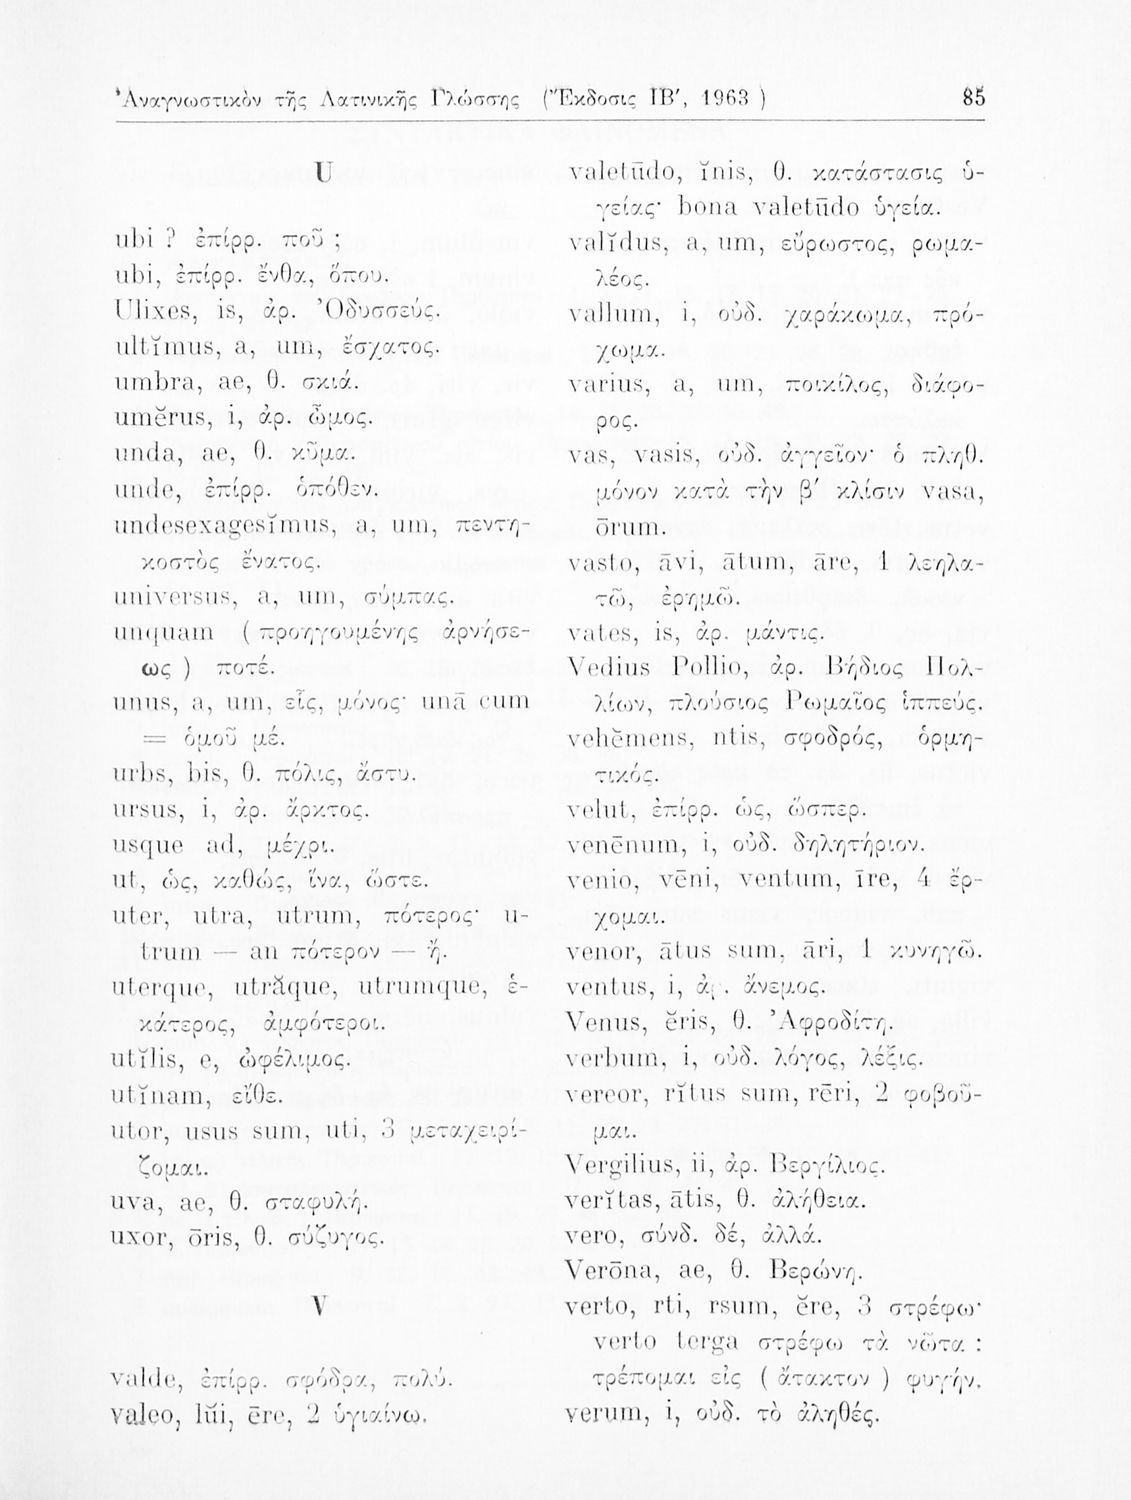 Ἀναγνωστικὸν τῆς Λατινικῆς Γλώσσης (Ἔκδοσις ΙΒʹ, 1963 ) 85
U
ubi ? ἐπίρρ. ποῦ ;
ubi, ἐπίρρ. ἔνθα, ὅπου.
Ulixes, is, ἀρ. Ὀδυσσεύς.
ultĭmus, a, um, ἔσχατος.
umbra, ae, θ. σκιά.
umĕrus, i, ἀρ. ὦμος.
unda, ae, θ. κῦμα.
unde, ἐπίρρ. ὁπόθεν.
undesexagesĭmus, a, um, πεντη-
κοστὸς ἔνατος.
universus, a, um, σύμπας.
unquam ( προηγουμένης ἀρνήσε-
ως ) ποτέ.
unus, a, um, εἷς, μόνος· unā cum
= ὁμοῦ μέ.
urbs, bis, θ. πόλις, ἄστυ.
ursus, i, ἀρ. ἄρκτος.
usque ad, μέχρι.
ut, ὡς, καθώς, ἵνα, ὥστε.
uter, utra, utrum, πότερος· u-
trum — an πότερον — ἤ.
uterque, utrăque, utrumque, ἑ-
κάτερος, ἀμφότεροι.
utĭlis, e, ὠφέλιμος.
utĭnam, εἴθε.
utor, usus sum, uti, 3 μεταχειρί-
ζομαι.
uva, ae, θ. σταφυλή.
uxor, ōris, θ. σύζυγος.
V
valde, ἐπίρρ. σφόδρα, πολύ.
valeo, lŭi, ēre, 2 ὑγιαίνω.
valetūdo, ĭnis, θ. κατάστασις ὑ-
γείας· bona valetūdo ὑγεία.
valĭdus, a, um, εὔρωστος, ρωμα-
λέος.
vallum, i, οὐδ. χαράκωμα, πρό-
χωμα.
varius, a, um, ποικίλος, διάφο-
ρος.
vas, vasis, οὐδ. ἀγγεῖον· ὁ πληθ.
μόνον κατὰ τὴν βʹ κλίσιν vasa,
ōrum.
vasto, āvi, ātum, āre, 1 λεηλα-
τῶ, ἐρημῶ.
vates, is, ἀρ. μάντις.
Vedius Pollio, ἀρ. Βήδιος Πολ-
λίων, πλούσιος Ρωμαῖος ἱππεύς.
vehĕmens, ntis, σφοδρός, ὁρμη-
τικός.
velut, ἐπίρρ. ὡς, ὥσπερ.
venēnum, i, οὐδ. δηλητήριον.
venio, vēni, ventum, īre, 4 ἔρ-
χομαι.
venor, ātus sum, āri, 1 κυνηγῶ.
ventus, i, ἀρ. ἄνεμος.
Venus, ĕris, θ. Ἀφροδίτη.
verbum, i, οὐδ. λόγος, λέξις.
vereor, rĭtus sum, rēri, 2 φοβοῦ-
μαι.
Vergilius, ii, ἀρ. Βεργίλιος.
verĭtas, ātis, θ. ἀλήθεια.
vero, σύνδ. δέ, ἀλλά.
Verōna, ae, θ. Βερώνη.
verto, rti, rsum, ĕre, 3 στρέφω·
verto terga στρέφω τὰ νῶτα :
τρέπομαι εἰς ( ἄτακτον ) φυγήν.
verum, i, οὐδ. τὸ ἀληθές.